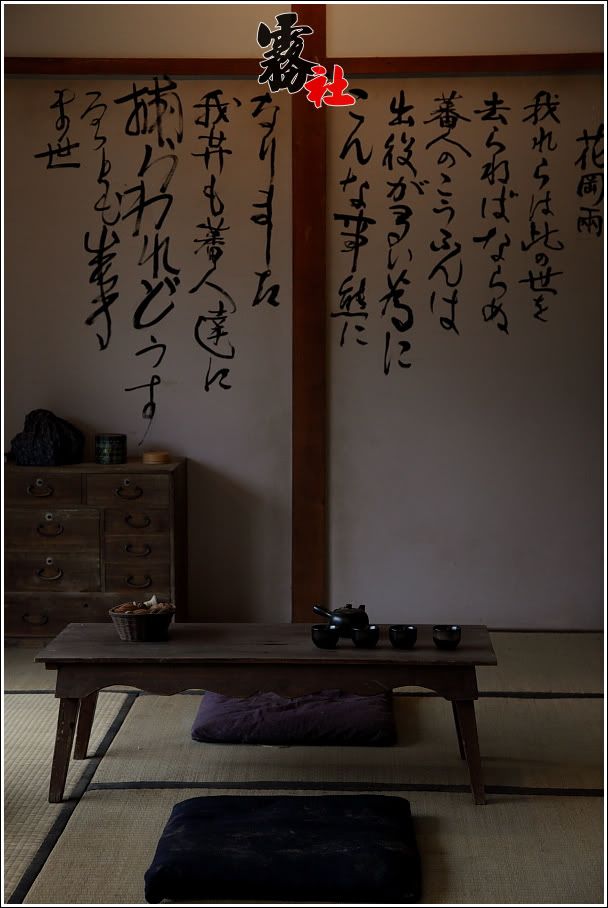 霧社
花岡兩
我れらは此の世を
去らねばならぬ
蕃人のこうふんは
出役が多い為に
こんな事態に
なりました
も蕃人達に
捕らわれどうす
ることも出来
ま世